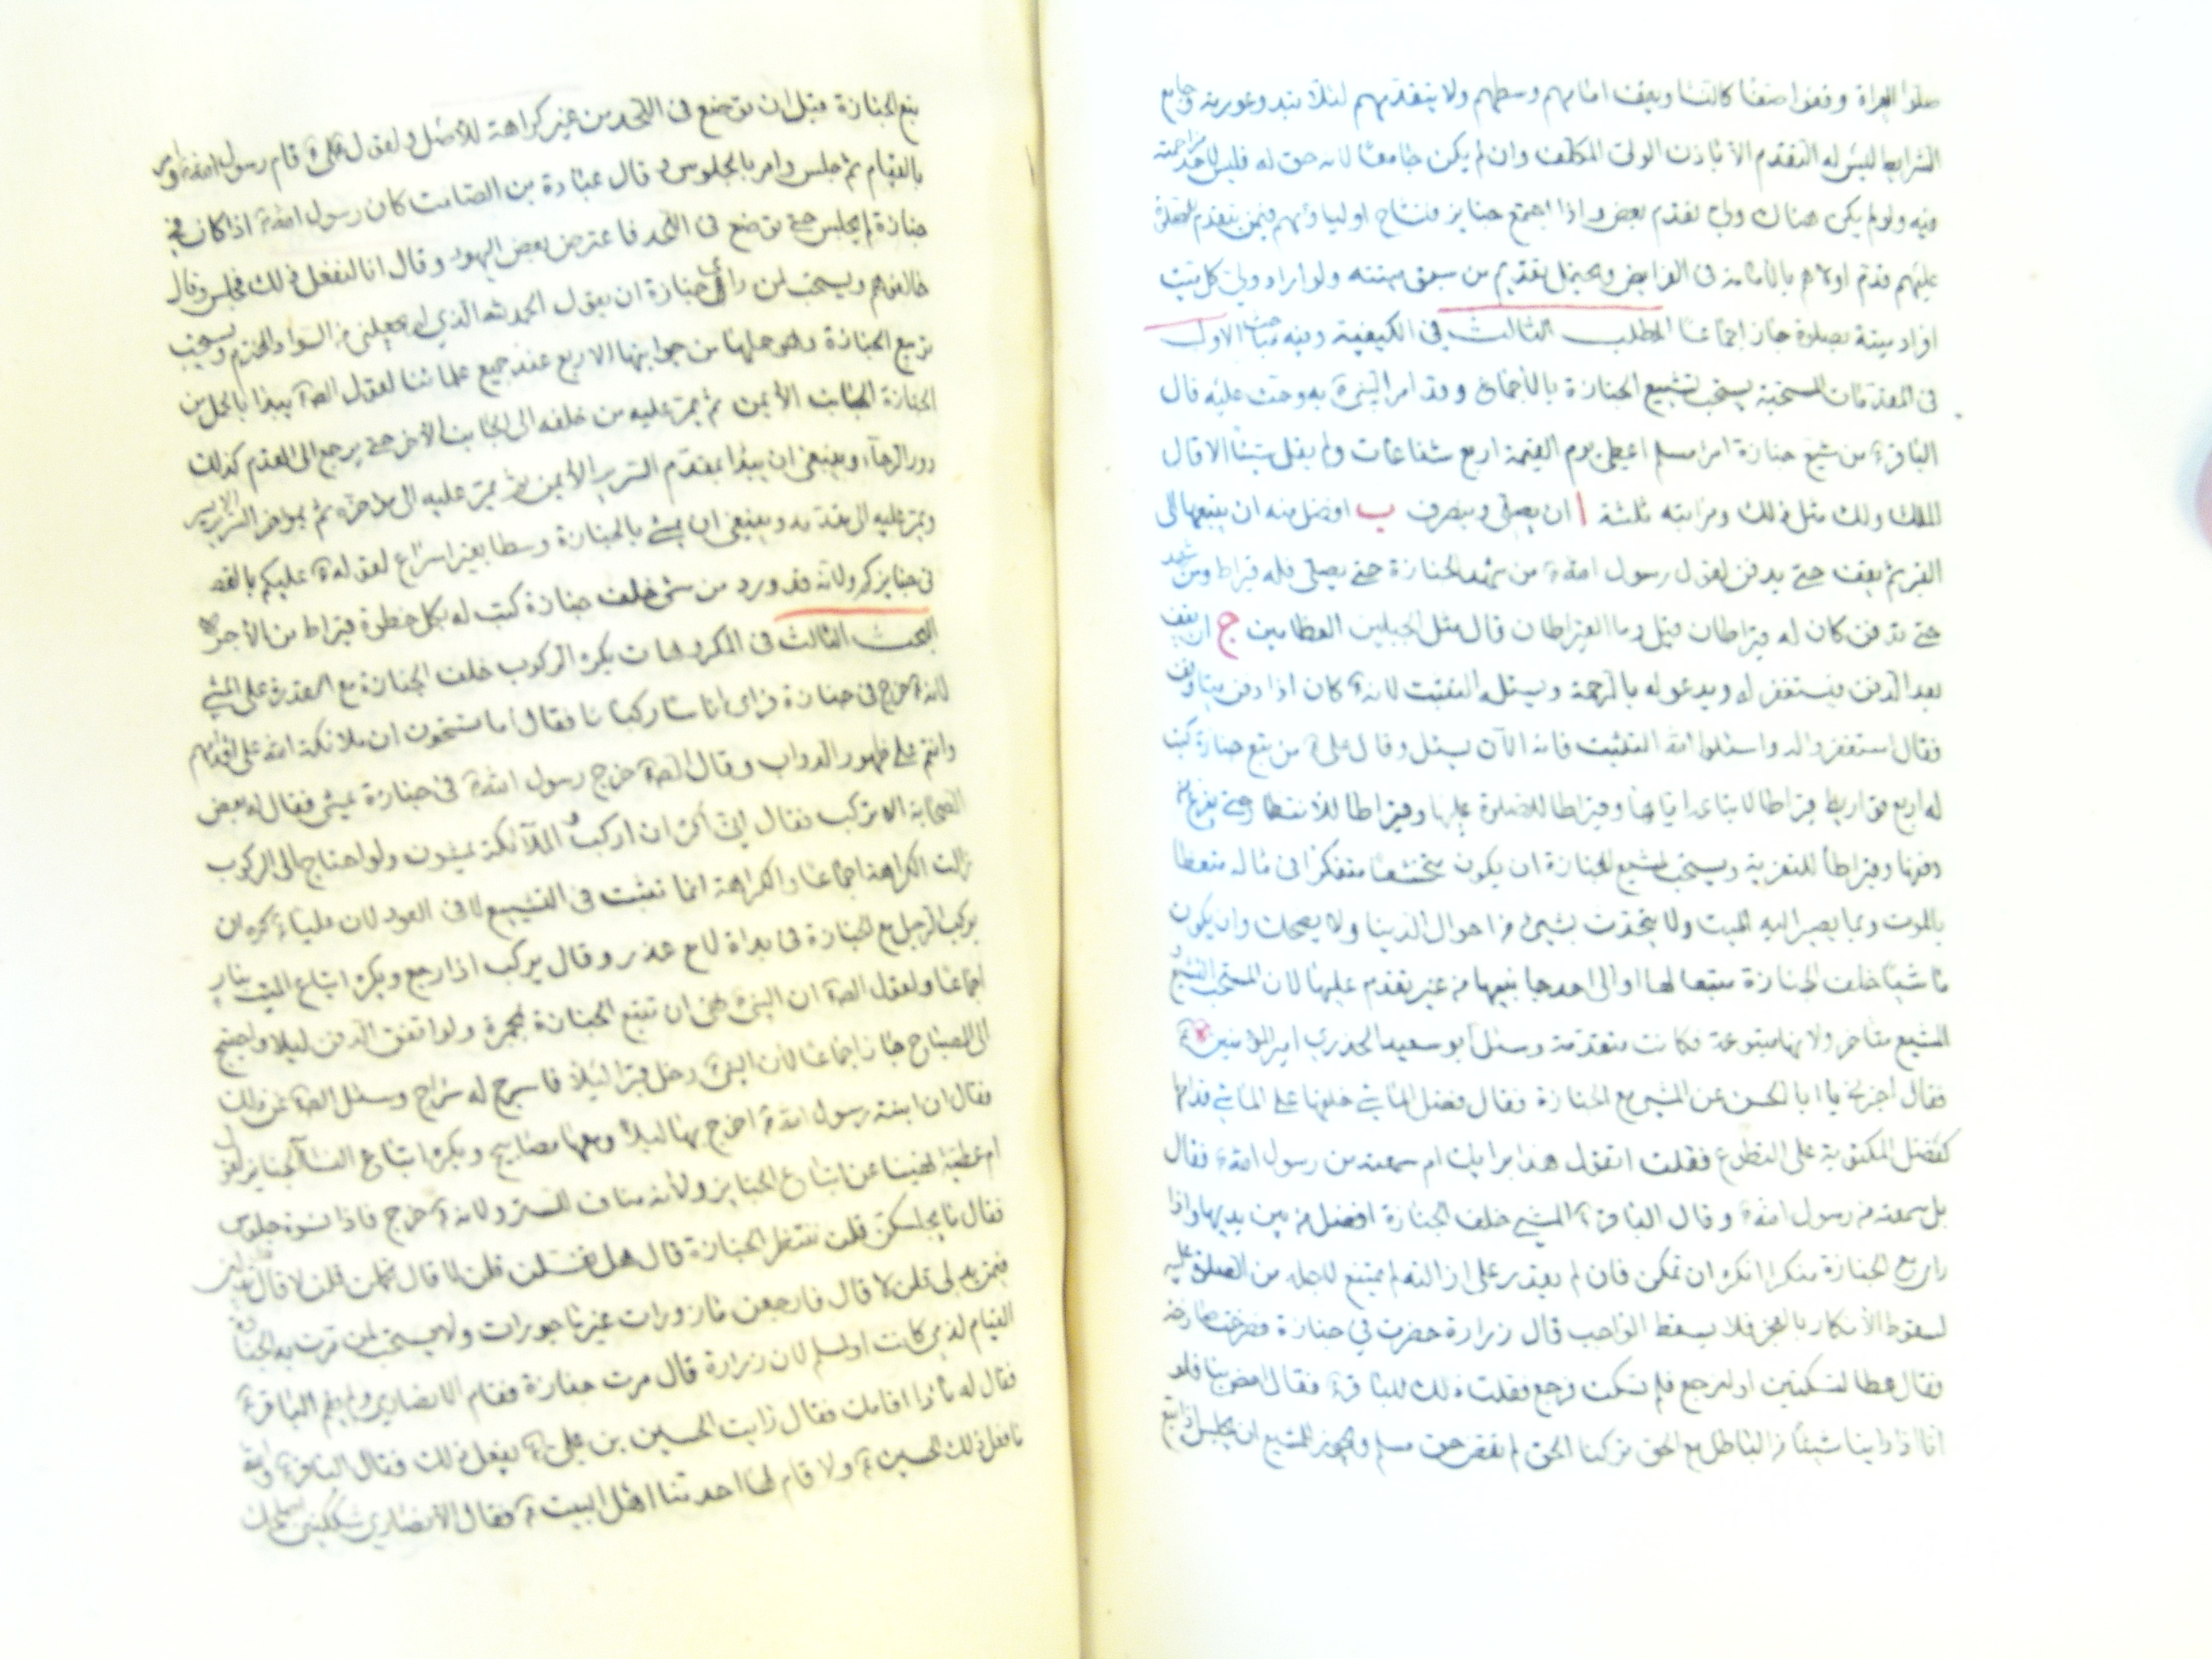 صلوا العراة وقفوا صفا كالنساء ويقف امامهم وسطهم ولا يتقدمهم لئلا تبدو عورته وجامع
الشرايط ليس له التقدم الا باذن الولي المكلف وان لم يكن جامعا لانه حق له فليس لاحد مزاحمته
فيه ولو لم يكن هناك ولي تقدم بعض واذا اجتمع جنايز فتشاح اولياؤهم فيمن يتقدم للصلوة
عليهم قدم اولاهم بالامامة في الفرايض ويحتمل تقديم من سبق ميته ولو اراد ولي كل ميت
افراد ميته بصلوة جاز اجماعا المطلب الثالث في الكيفية وفيه مباحث الاول
في المقدمات المستحبة يستحب تشييع الجنازة بالاجماع وقد امر النبي ص به وحث عليه قال
الباقر ع من شيع جنازة امرا مسلم اعطي يوم القيمة اربع شفاعات ولم يقل شيئا الا قال
الملك ولك مثل ذلك ومراتبه ثلثة ا ان يصلي وينصرف ب افضل منه ان يتبعها الى
القبر ثم يقف حتى يدفن لقول رسول الله ص من شهد الجنازة حتى يصلي فله قيراط ومن شهد
حتى تدفن كان له قيراطان قيل وما القيراطان قال مثل الجبلين العظيمين ج ان يقف
بعد الدفن فيستغفر له ويدعو له بالرحمة ويسئله التثبيت لانه ص كان اذا دفن ميتا وقف
فقال استغفروا له واسئلوا الله التثبيت فانه الآن يسئل وقال علي ع من تبع جنازة كتب
له اربع قواريط قيراطا لاتباعه اياها وقيراطا للصلوة عليها وقيراطا للانتظار حتى يفرغ من
دفنها وقيراطا للتعزية ويستحب لمشيع الجنازة ان يكون متخشعا متفكرا في ماله متعظا
بالموت وبما يصير اليه الميت ولا يتحدث بشيئ من احوال الدنيا ولا يضحك وان يكون
ماشيا خلف الجنازة متبعا لها او الى احد جانبيها من غير تقدم عليها لان المستحب التشيع
المشيع متاخر ولانها متبوعة فكانت متقدمة وسئل ابو سعيد الخدري امير المؤمنين ع
فقال اخبرني يا ابا الحسن عن المشي مع الجنازة فقال فضل الماشي خلفها على الماشي قدامها
كفضل المكتوبة على التطوع فقلت اتقول هذا برايك ام سمعته من رسول الله ص فقال
بل سمعته من رسول الله ص وقال الباقر ع المشي خلف الجنازة افضل من بين يديها واذا
راى مع الجنازة منكرا انكره ان تمكن فان لم يقدر على ازالته لم يمتنع لاجله من الصلوة عليه
لسقوط الانكار بالعجز فلا يسقط الواجب قال زرارة حضرت في جنازة فصرخت صارخة
فقال عطا لتسكتين او لنرجع فلم تسكت فرجع فقلت ذلك للباقر ع فقال امض بنا فلو
انا اذا راينا شيئا من الباطل مع الحق تركنا الحق لم نقض حق مسلم ويجوز للمشيع ان يجلس اذا تبع
يتبع الجنازة قبل ان توضع في اللحد من غير كراهة للاصل ولقول علي ع قام رسول الله ص وامر
بالقيام ثم جلس وامر بالجلوس وقال عبادة بن الصامت كان رسول الله ص اذا كان في
جنازة لم يجلس حتى توضع في اللحد فاعترض بعض اليهود وقال انا لنفعل ذلك فجلس وقال
خالفوهم ويستحب لمن راى جنازة ان يقول الحمد لله الذي لم يجعلني من السواد المخترم ويستحب
تربيع الجنازة وهو حملها من جوانبها الاربع عند جميع علمائنا لقول الص ع يبدا بالحمل من
الجنازة الجانب الايمن ثم يمر عليه من خلفه الى الجانب الآخر حتى يرجع الى المقدم كذلك
دور الرحا وينبغي ان يبدا بمقدم السرير الايمن ثم يمر عليه الى مؤخره ثم بمؤخر السرير الايسر
ويمر عليه الى مقدمه وينبغي ان يمشي بالجنازة وسطا بغير اسراع لقوله ص عليكم بالقصد
في جنايزكم ولانه قد ورد من مشى خلف جنازة كتب له بكل خطوة قيراط من الاجر
البحث الثالث في المكروهات يكره الركوب خلف الجنازة مع القدرة على المشي
لانه ص خرج في جنازة فراى اناسا ركبانا فقال اما تستحيون ان ملائكة الله على اقدامهم
وانتم على ظهور الدواب وقال الص ع خرج رسول الله ص في جنازة يمشي فقال له بعض
الصحابة الا تركب فقال اني اكره ان اركب والملائكة يمشون ولو احتاج الى الركوب
زالت الكراهة اجماعا والكراهة انما تثبت في التشييع لا في العود لان عليا ع كره ان
يركب الرجل مع الجنازة في بداة لا مع عذر وقال يركب اذا رجع ويكره اتباع الميت بنار
اجماعا ولقول الص ع ان النبي ص نهى ان تتبع الجنازة بمجمرة ولو اتفق الدفن ليلا واحتيج
الى المصباح جاز اجماعا لان النبي ص دخل قبرا ليلا فاسرج له سراج وسئل الص ع عن ذلك
فقال ان ابنة رسول الله ص اخرج بها ليلا ومعها مصابيح ويكره اتباع النساء الجنايز لقول
ام عطية نهينا عن اتباع الجنايز ولانه مناف للستر ولانه ص خرج فاذا نسوة جلوس
فقال ما يجلسكن قلن ننتظر الجنازة قال هل تغسلن قلن لا قال هل تحملن قلن لا قال هل تدلين
فيمن يدلي قلن لا قال فارجعن مازورات غير ماجورات ولا يستحب لمن مرت به الجنازة
القيام لذمي كانت او لمسلم لان زرارة قال مرت جنازة فقام الانصاري ولم يقم الباقر ع
فقال له ما ذا اقامك فقال رايت الحسين بن علي ع يفعل ذلك فقال الباقر ع والله
ما فعل ذلك الحسين ع ولا قام لها احد منا اهل البيت ع فقال الانصاري شككتني اصلحك